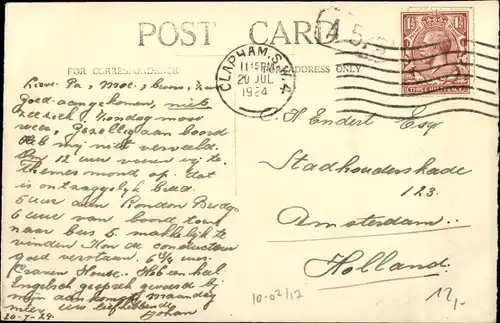 POST CARD
FOR CORRESPONDENCE
FOR ADDRESS ONLY
CLAPHAM. S.W.4
11 15 PM
20 JUL
1924
THREE HALFPENCE
Lieve Pa, Moe,
Goed aangekomen, niet
zeeziek, Zondag mooi
weer, Gezellig aan boord
Heb mij niet verveeld.
12 uur voeren wij te
Theemsmond op. dat
is ontzaggelijk breed.
5 uur aan London Bridge
6 uur van boord toen
naar bus 5 makkelijk te
vinden Kon de conducteur
goed verstaan. 6 3/4 uur
Craven House. Heb een hal
Engelsch gesprek gevoerd bij
mijn aankomst maandag
meer uw liefhebbende
Johan
20-7-24
C. H. Endert Esq
Stadhouderskade
123.
Amsterdam.
Holland.
10-02/12
12,-